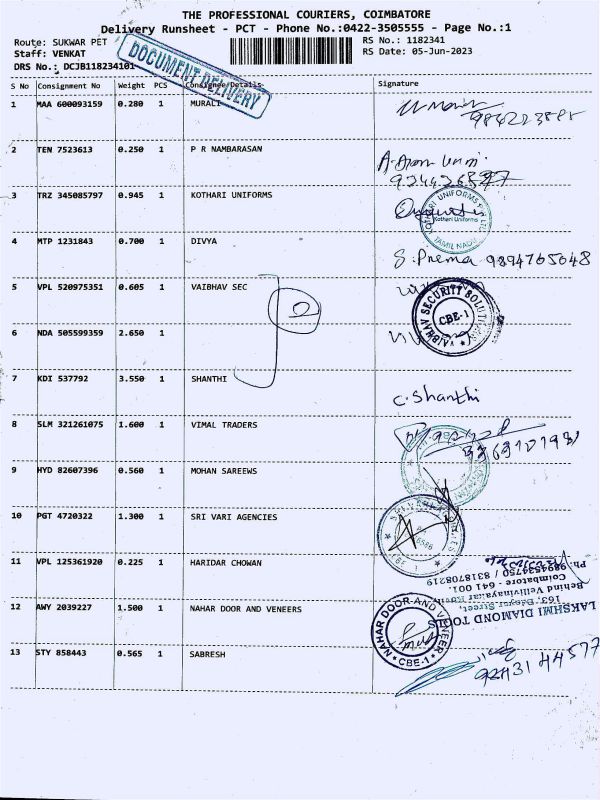 THE PROFESSIONAL COURIERS, COIMBATORE
Delivery Runsheet - PCT - Phone No.:0422-3505555 - Page No.:1
Route: SUKWAR PET RS No.: 1182341
Staff: VENKAT RS Date: 05-Jun-2023
DRS No.: DCJB118234101
DOCUMENT DELIVERY
S No Consignment No Weight PCS Consignee Details Signature
1 MAA 600093159 0.280 1 MURALI
2 TEN 7523613 0.250 1 P R NAMBARASAN
3 TRZ 345085797 0.945 1 KOTHARI UNIFORMS
KOTHARI UNIFORMS
Kothari Uniforms
TAMIL NADU
4 MTP 1231843 0.700 1 DIVYA S. Prema 9894765048
5 VPL 520975351 0.605 1 VAIBHAV SEC
VAIBHAV SECURITY SOLUTIONS
CBE-1
6 NDA 505599359 2.650 1
7 KDI 537792 3.550 1 SHANTHI C. Shanthi
8 SLM 321261075 1.600 1 VIMAL TRADERS
9 HYD 82607396 0.560 1 MOHAN SAREEWS
10 PGT 4720322 1.300 1 SRI VARI AGENCIES
11 VPL 125361920 0.225 1 HARIDAR CHOWAN
LAKSHMI DIAMOND TOOLS
Street,
Coimbatore - 641 001.
12 AWY 2039227 1.500 1 NAHAR DOOR AND VENEERS
NAHAR DOOR AND VENEER
CBE-1
13 STY 858443 0.565 1 SABRESH